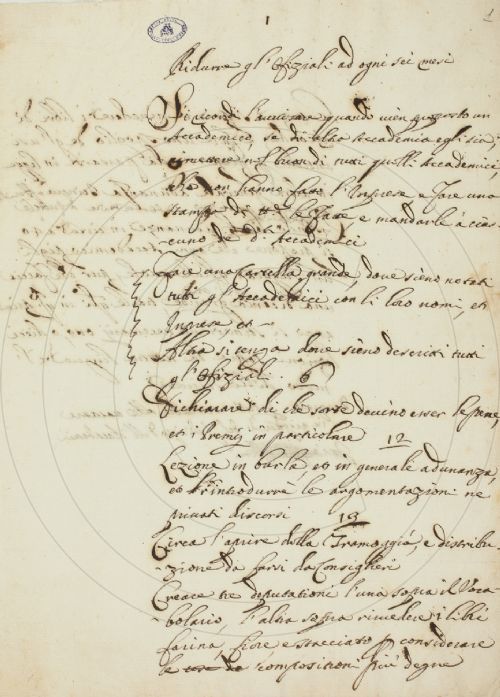 1
1
Ridurre gl'Ofiziali ad ogni sei mesi
Si ricordi l'avvisare quando vien proposto un
Accademico, se di altra Accademia egli sia,
rimettere nel buon di tutti quelli Accademici,
che non hanno fatto l'Imprese e fare una
stampa di tte le Tase e mandarle à cias-
cuno de' dti Accademici
Fare una Cartella grande, dove sieno notati
tutti gl'Accademici con li loro nomi, et
Imprese, et-
Altra si cenza dove sieno descritti tutti
gl'Ofiziali. 6
Dichiarare di che sorte devino esser le pene,
et i Premij in particolare 12
Lezione in burla, et in generale adunanza,
et introdurrà le argomentazioni ne
privati discorsi 19
Circa l'aprire della Tramoggia, e distribu
zione da farsi da Consiglieri
Creare tre deputationi l'una sopra il Voca-
bolario, l'altra sopra rivedere i libri
farina, fiore e stacciato p considerare
le compositioni più degne